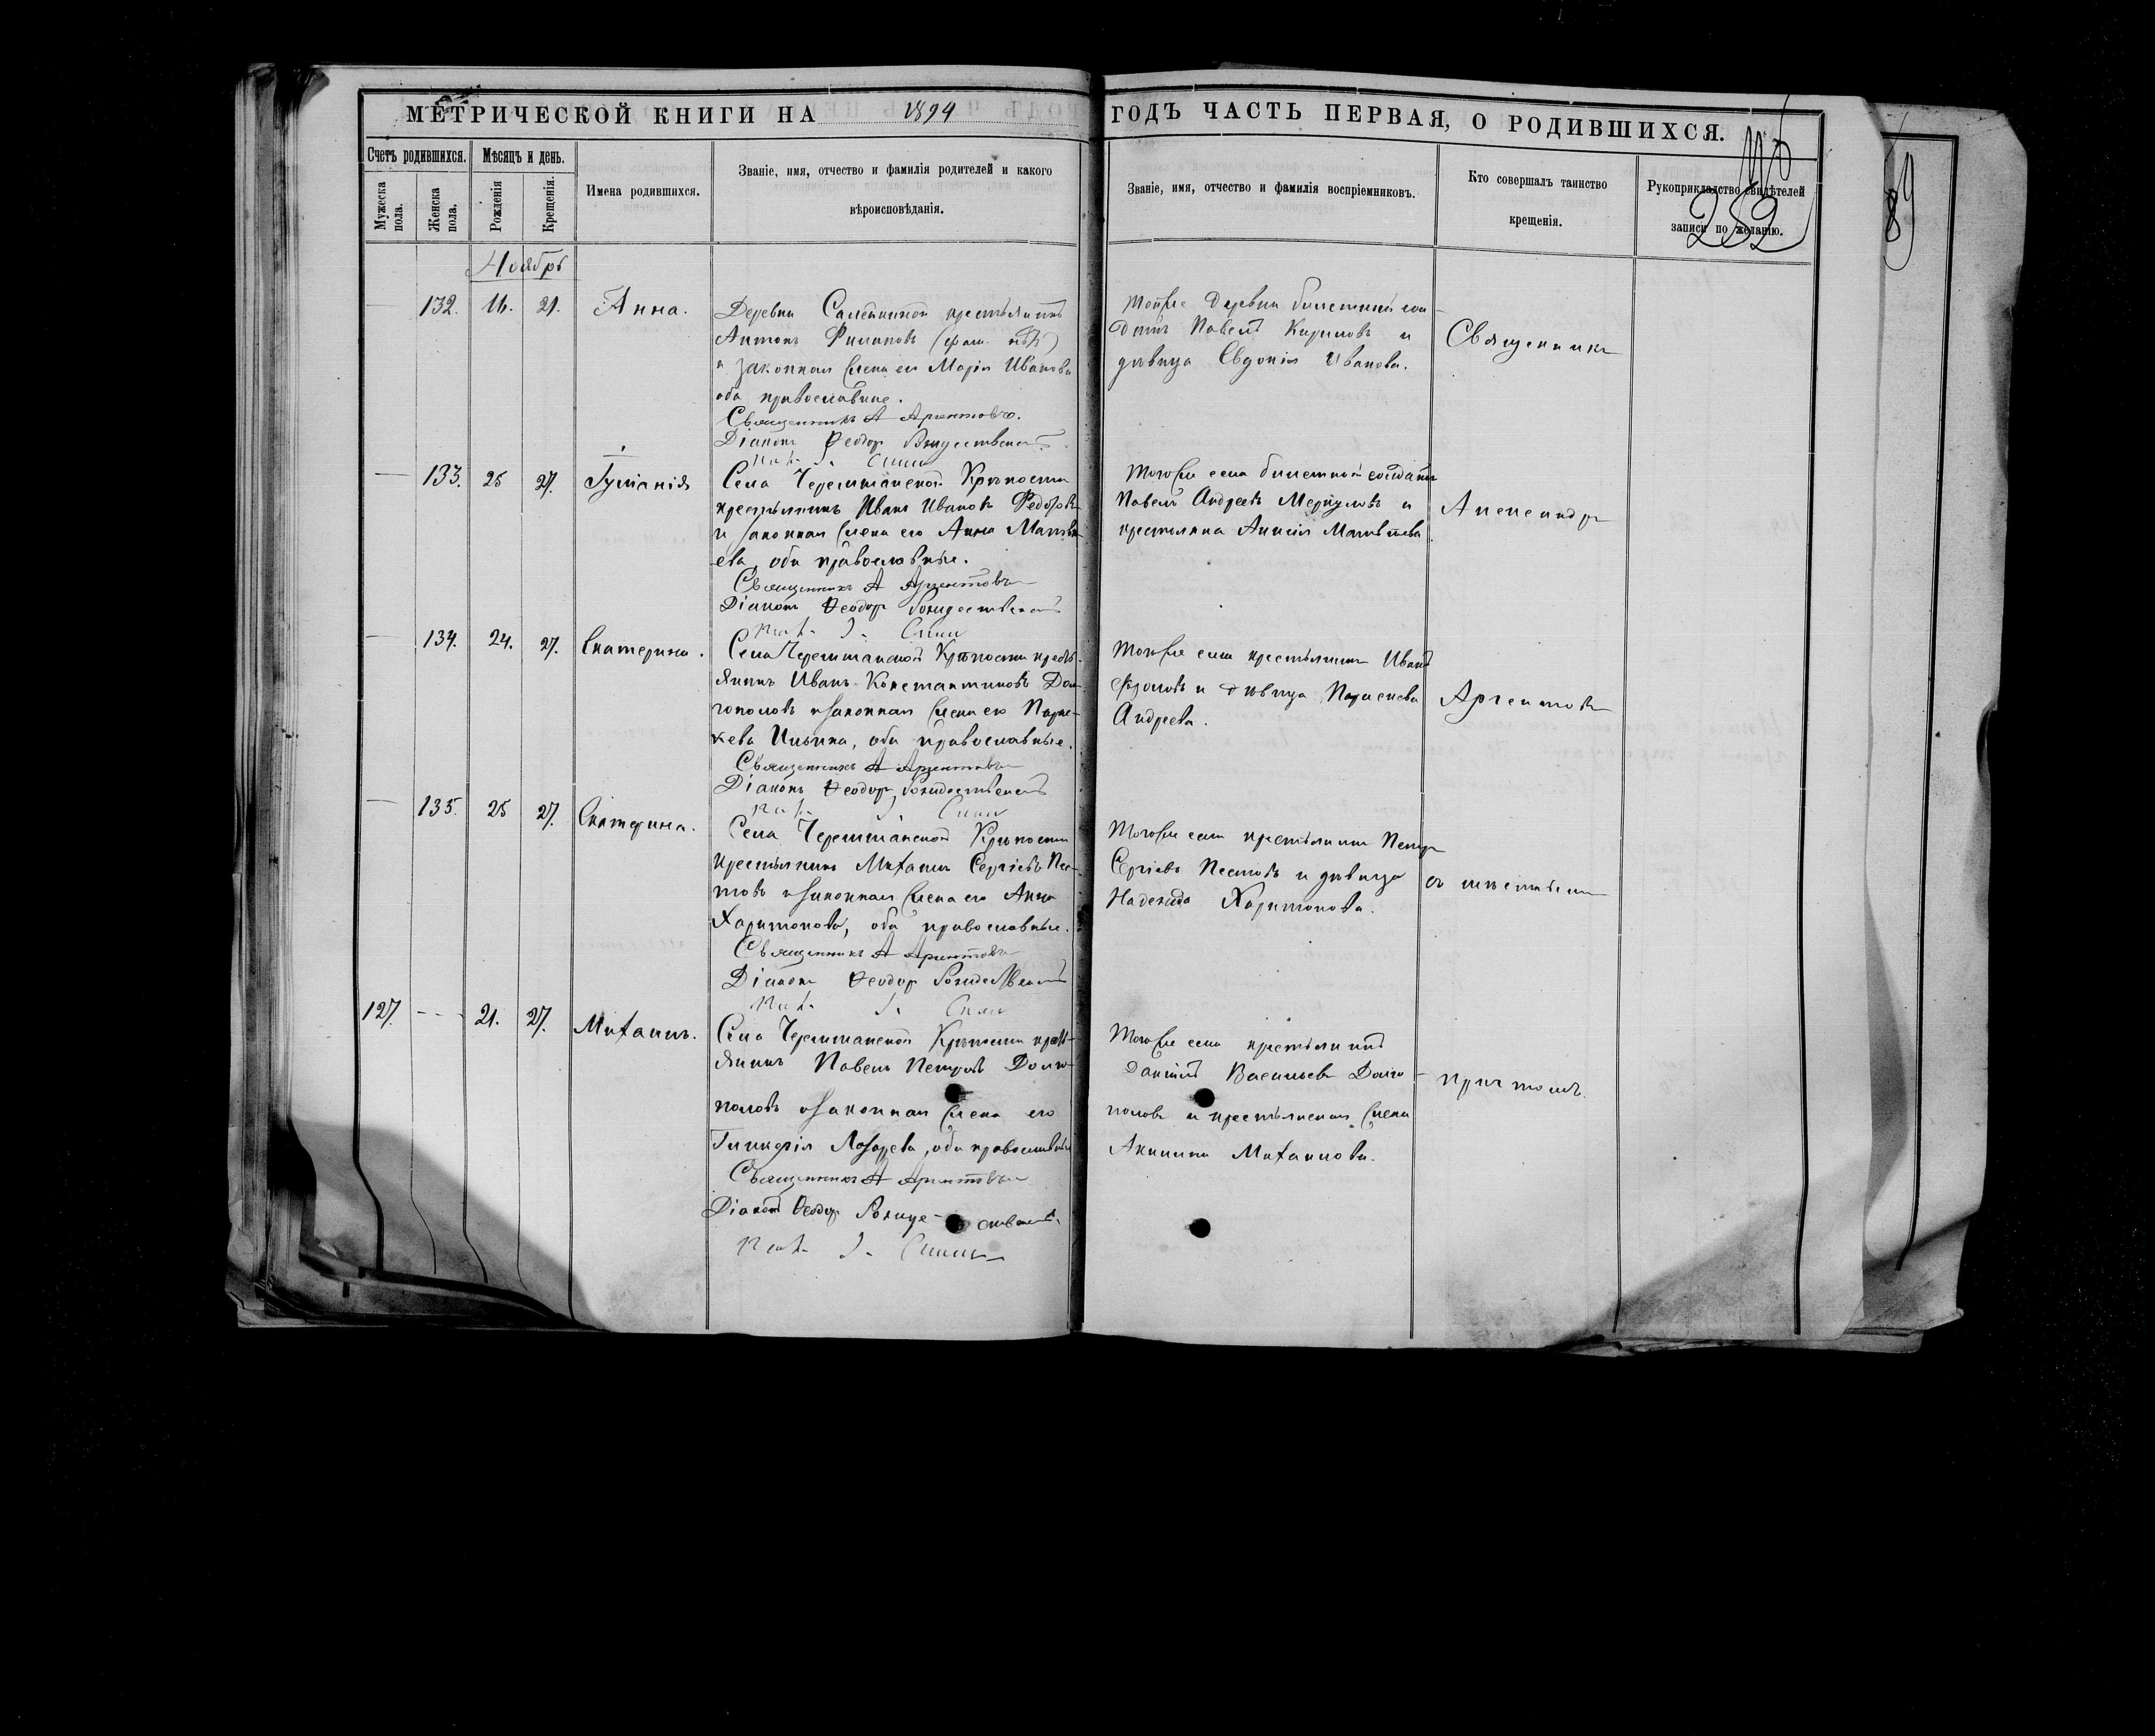 МЕТРИЧЕСКОЙ КНИГИ НА 1894 ГОДЪ ЧАСТЬ ПЕРВАЯ, О РОДИВШИХСЯ.
252
89
Счетъ родившихся.
Мужеска пола.
Женска пола.
Мѣсяцъ и день.
Рожденія
Крещенія.
Имена родившихся.
Званіе, имя, отчество и фамилія родителей и какого
вѣроисповѣданія.
Званіе, имя, отчество и фамилія воспріемниковъ.
Кто совершалъ таинство
крещенія.
Рукоприкладство свидѣтелей
записи по желанію.
Ноябрь
132. 16. 21. Анна.
Деревни крестьянинъ
Антонъ Филиповъ
и законная жена его Марія Иванова
оба православные.
Священникъ А Аргентовъ.
Діаконъ Ѳеодор Рождественскій
Тойже деревни билетный сол-
датъ Павелъ Кириловъ и
дѣвица Евдокія Иванова.
133. 25 27. Іуліанія
Села Черемшанской Крѣпости
крестьянинъ Иванъ Ивановъ Федоровъ
и законная жена его Анна Матвѣ-
ева, оба православные.
Священникъ А Аргентовъ
Діаконъ Ѳеодор Рождественскій
Тогоже села билетный солдатъ
Павелъ Андреевъ Меркуловъ и
крестьянка Анисія Матвѣева
134. 24. 27. Екатерина.
Села Черемшанской Крѣпости кресть-
янинъ Иванъ Константиновъ Дол-
гополовъ и законная жена его Парас-
кева Ильина, оба православные.
Священникъ А Аргентовъ
Діаконъ Ѳеодор Рождественскій
Тогоже села крестьянинъ Иванъ
Фроловъ и дѣвица Параскева
Андреева.
135. 25 27. Екатерина.
Села Черемшанской Крѣпости
крестьянинъ Михаилъ Сергіевъ Пес-
товъ и законная жена его Анна
Харитонова, оба православные.
Священникъ А Аргентовъ
Діаконъ Ѳеодор Рождественскій
Тогоже села крестьянинъ Петръ
Сергіевъ Пестовъ и дѣвица
Надежда Харитонова.
127. 21. 27. Михаилъ.
Села Черемшанской Крѣпости крест-
янинъ Павелъ Петровъ Долго-
половъ и законная жена его
Гликерія Лазарева, оба православные
Священникъ А Аргентовъ
Діаконъ Ѳеодор Рождественскій
Тогоже села крестьянинъ
Даніилъ Васильевъ Долго-
половъ и крестьянская жена
Акилина Михаилова.
Священникъ
Александръ
Аргентовъ
съ
причтомъ.